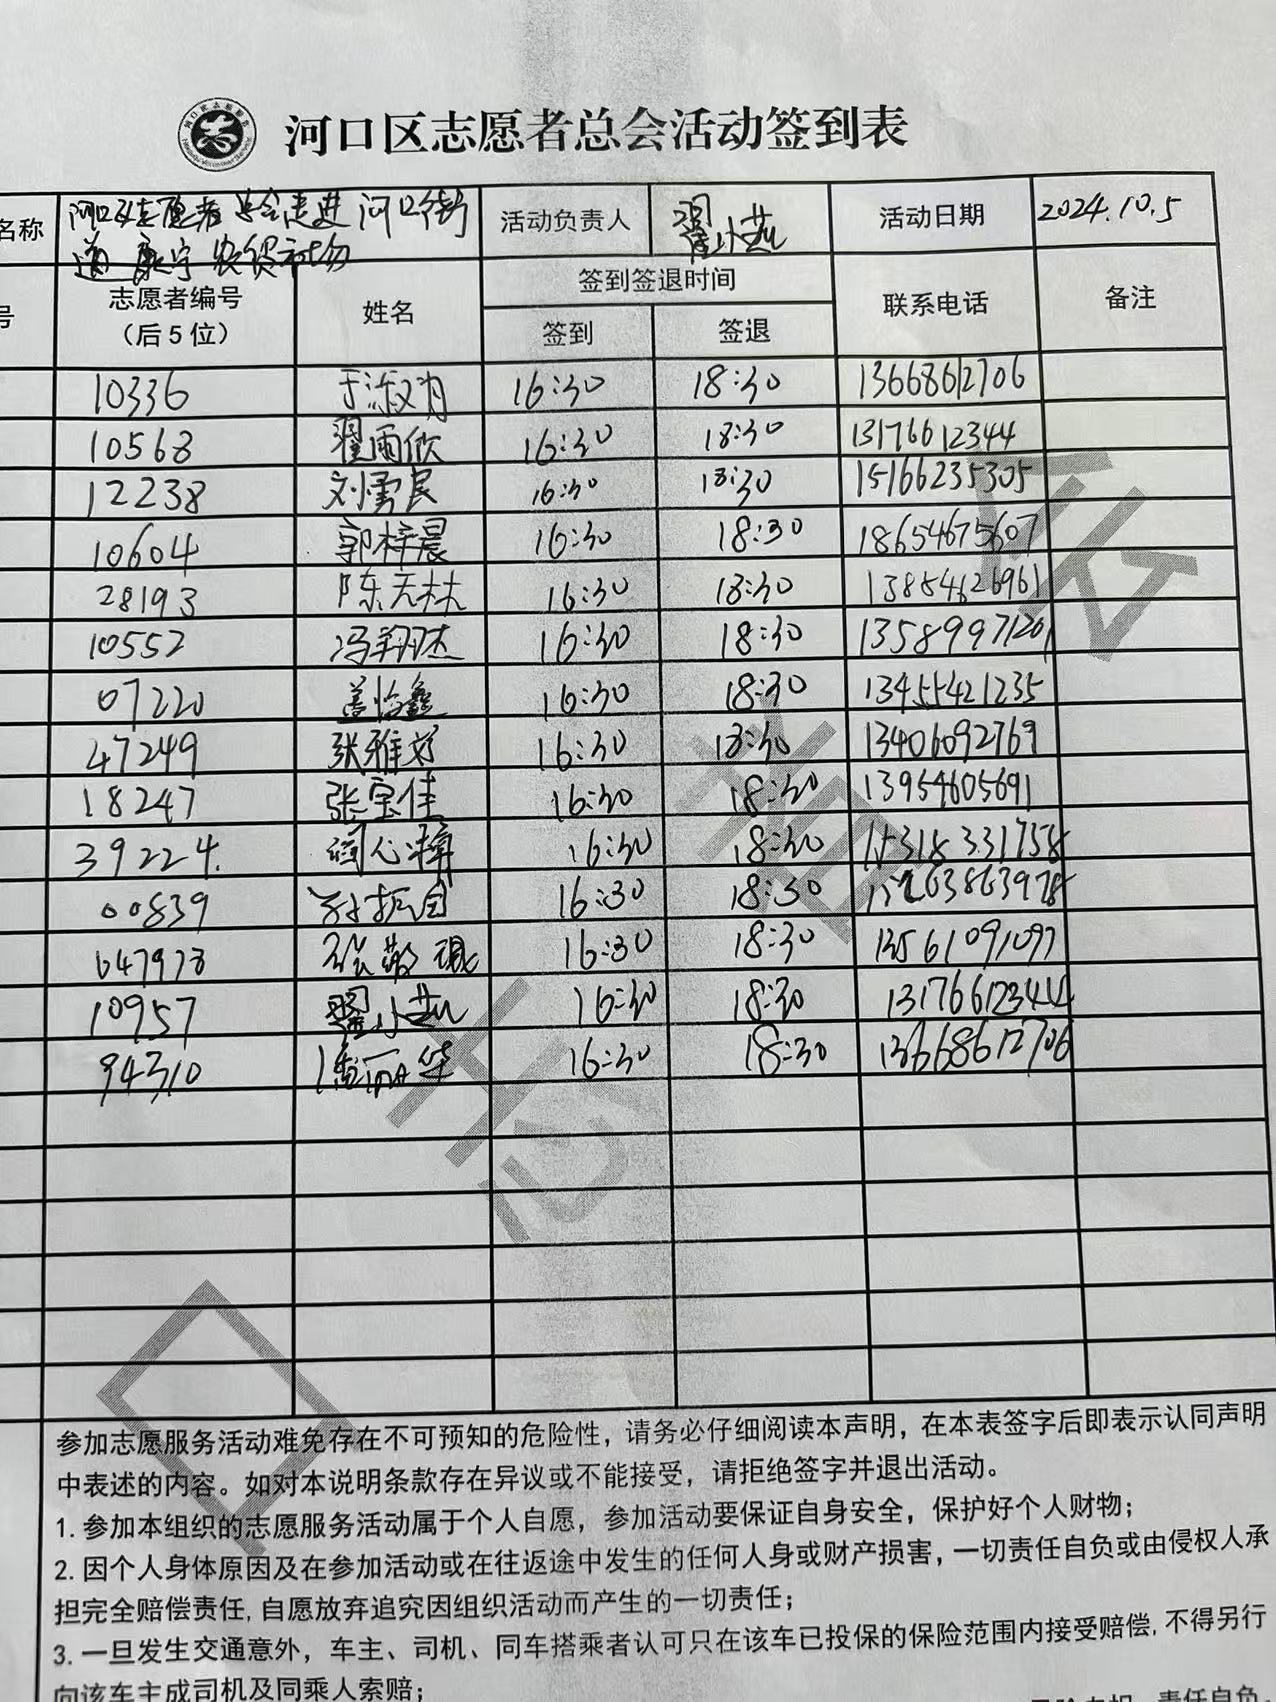 河口区志愿者总会活动签到表
名称 河口区志愿者总会走进河口街 活动负责人 翟小燕 活动日期 2024.10.5
道康宁农贸市场
号 志愿者编号 姓名 签到签退时间 联系电话 备注
（后5位） 签到 签退
10336 于淑娟 16:30 18:30 13668612706
10568 翟雨欣 16:30 18:30 13176612344
12238 刘雪宸 16:30 18:30 15166235305
10604 郭梓晨 16:30 18:30 18654675607
28193 陈天林 16:30 18:30 13854626961
10552 冯翔杰 16:30 18:30 13589997120
07220 盖怡鑫 16:30 18:30 13455421235
47249 张雅婷 16:30 18:30 13406092769
18247 张宝佳 16:30 18:30 13954605691
39224. 16:30 18:30 15318331758
00839 16:30 18:30
647978 张敬 16:30 18:30 13561091097
10957 翟小燕 16:30 18:30 13176612344
94310 潘丽华 16:30 18:30 13668612706
口
志
者
会
参加志愿服务活动难免存在不可预知的危险性，请务必仔细阅读本声明，在本表签字后即表示认同声明
中表述的内容。如对本说明条款存在异议或不能接受，请拒绝签字并退出活动。
1. 参加本组织的志愿服务活动属于个人自愿，参加活动要保证自身安全，保护好个人财物；
2. 因个人身体原因及在参加活动或在往返途中发生的任何人身或财产损害，一切责任自负或由侵权人承
担完全赔偿责任, 自愿放弃追究因组织活动而产生的一切责任；
3. 一旦发生交通意外，车主、司机、同车搭乘者认可只在该车已投保的保险范围内接受赔偿, 不得另行
向该车主或司机及同乘人索赔；
责任自负